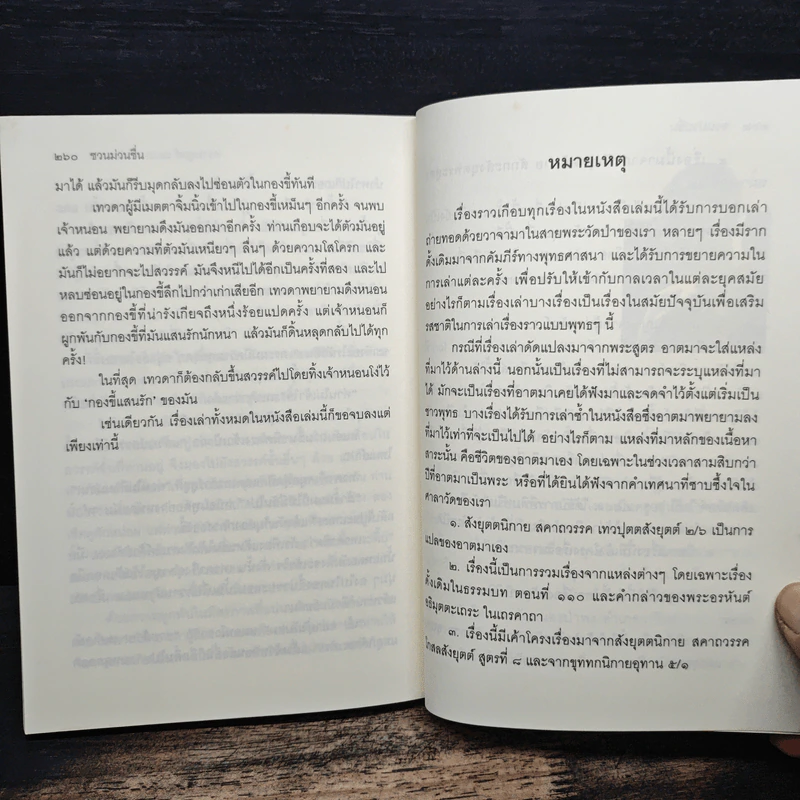 ๒๖๐ ชวนม่วนชื่น
มาได้ แล้วมันก็รีบมุดกลับลงไปซ่อนตัวในกองขี้ทันที
เทวดาผู้มีเมตตาจิ้มนิ้วเข้าไปในกองขี้เหม็นๆ อีกครั้ง จนพบ
เจ้าหนอน พยายามดึงมันออกมาอีกครั้ง ท่านเกือบจะได้ตัวมันอยู่
แล้ว แต่ด้วยความที่ตัวมันเหนียวๆ ลื่นๆ ด้วยความโสโครก และ
มันก็ไม่อยากจะไปสวรรค์ มันจึงหนีไปได้อีกเป็นครั้งที่สอง และไป
หลบซ่อนอยู่ในกองขี้ลึกไปกว่าเก่าเสียอีก เทวดาพยายามดึงหนอน
ออกจากกองขี้ที่น่ารังเกียจถึงหนึ่งร้อยแปดครั้ง แต่เจ้าหนอนก็
ผูกพันกับกองขี้ที่มันแสนรักนักหนา แล้วมันก็ดิ้นหลุดกลับไปได้ทุก
ครั้ง!
ในที่สุด เทวดาก็ต้องกลับขึ้นสวรรค์ไปโดยทิ้งเจ้าหนอนโง่ไว้
กับ 'กองขี้แสนรัก' ของมัน
เช่นเดียวกัน เรื่องเล่าทั้งหมดในหนังสือเล่มนี้ก็ขอจบลงแต่
เพียงเท่านี้
หมายเหตุ
เรื่องราวเกือบทุกเรื่องในหนังสือเล่มนี้ได้รับการบอกเล่า
ถ่ายทอดด้วยวาจามาในสายพระวัดป่าของเรา หลายๆ เรื่องมีราก
ดั้งเดิมมาจากคัมภีร์ทางพุทธศาสนา และได้รับการขยายความใน
การเล่าแต่ละครั้ง เพื่อปรับให้เข้ากับกาลเวลาในแต่ละยุคสมัย
อย่างไรก็ตามเรื่องเล่าบางเรื่องเป็นเรื่องในสมัยปัจจุบันเพื่อเสริม
รสชาติในการเล่าเรื่องราวแบบพุทธๆ นี้
กรณีที่เรื่องเล่าดัดแปลงมาจากพระสูตร อาตมาจะใส่แหล่ง
ที่มาไว้ด้านล่างนี้ นอกนั้นเป็นเรื่องที่ไม่สามารถจะระบุแหล่งที่มา
ได้ มักจะเป็นเรื่องที่อาตมาเคยได้ฟังมาและจดจำไว้ตั้งแต่เริ่มเป็น
ชาวพุทธ บางเรื่องได้รับการเล่าซ้ำในหนังสือซึ่งอาตมาพยายามลง
ที่มาไว้เท่าที่จะเป็นไปได้ อย่างไรก็ตาม แหล่งที่มาหลักของเนื้อหา
สาระนั้น คือชีวิตของอาตมาเอง โดยเฉพาะในช่วงเวลาสามสิบกว่า
ปีที่อาตมาเป็นพระ หรือที่ได้ยินได้ฟังจากคำเทศนาที่ซาบซึ้งใจใน
ศาลาวัดของเรา
๑. สังยุตตนิกาย สคาถวรรค เทวปุตตสังยุตต์ ๒/๖ เป็นการ
แปลของอาตมาเอง
๒. เรื่องนี้เป็นการรวมเรื่องจากแหล่งต่างๆ โดยเฉพาะเรื่อง
ดั้งเดิมในธรรมบท ตอนที่ ๑๑๐ และคำกล่าวของพระอรหันต์
อธิมุตตะเถระ ในเถรคาถา
๓. เรื่องนี้มีเค้าโครงเรื่องมาจากสังยุตตนิกาย สคาถวรรค
โกสลสังยุตต์ สูตรที่ ๘ และจากขุททกนิกายอุทาน ๕/๑